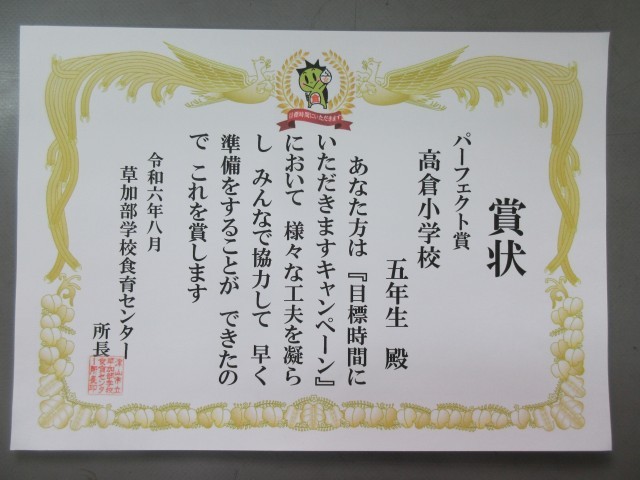 目標時間にいただきます
賞状
パーフェクト賞
高倉小学校
五年生 殿
あなた方は『目標時間に
いただきますキャンペーン』
において 様々な工夫を凝ら
し みんなで協力して 早く
準備をすることが できたの
で これを賞します
令和六年八月
草加部学校食育センター
所長